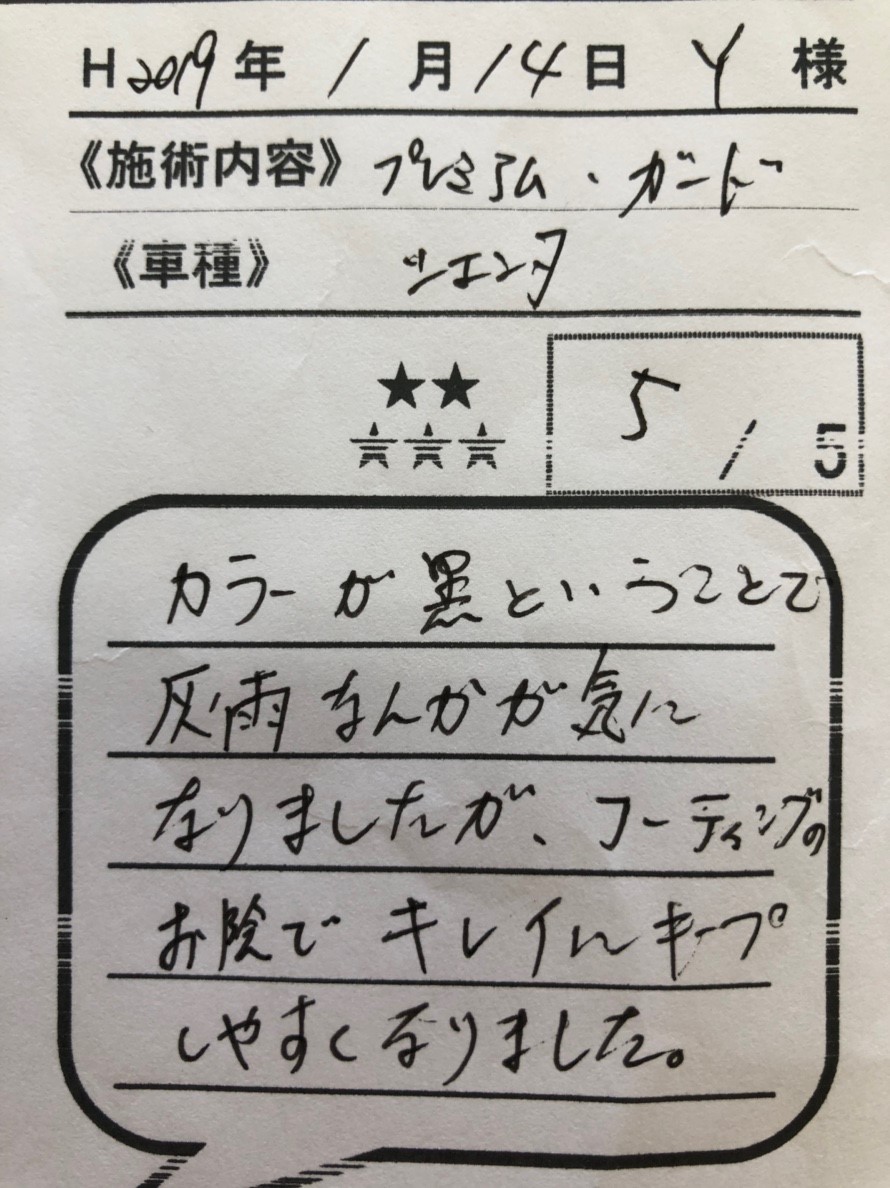 H2019年1月14日 Y 様
《施術内容》プレミアム・ガード
《車種》シエンタ
★★
★★★
5/5
カラーが黒ということで
灰、雨なんかが気に
なりましたが、コーティングの
お陰でキレイにキープ
しやすくなりました。